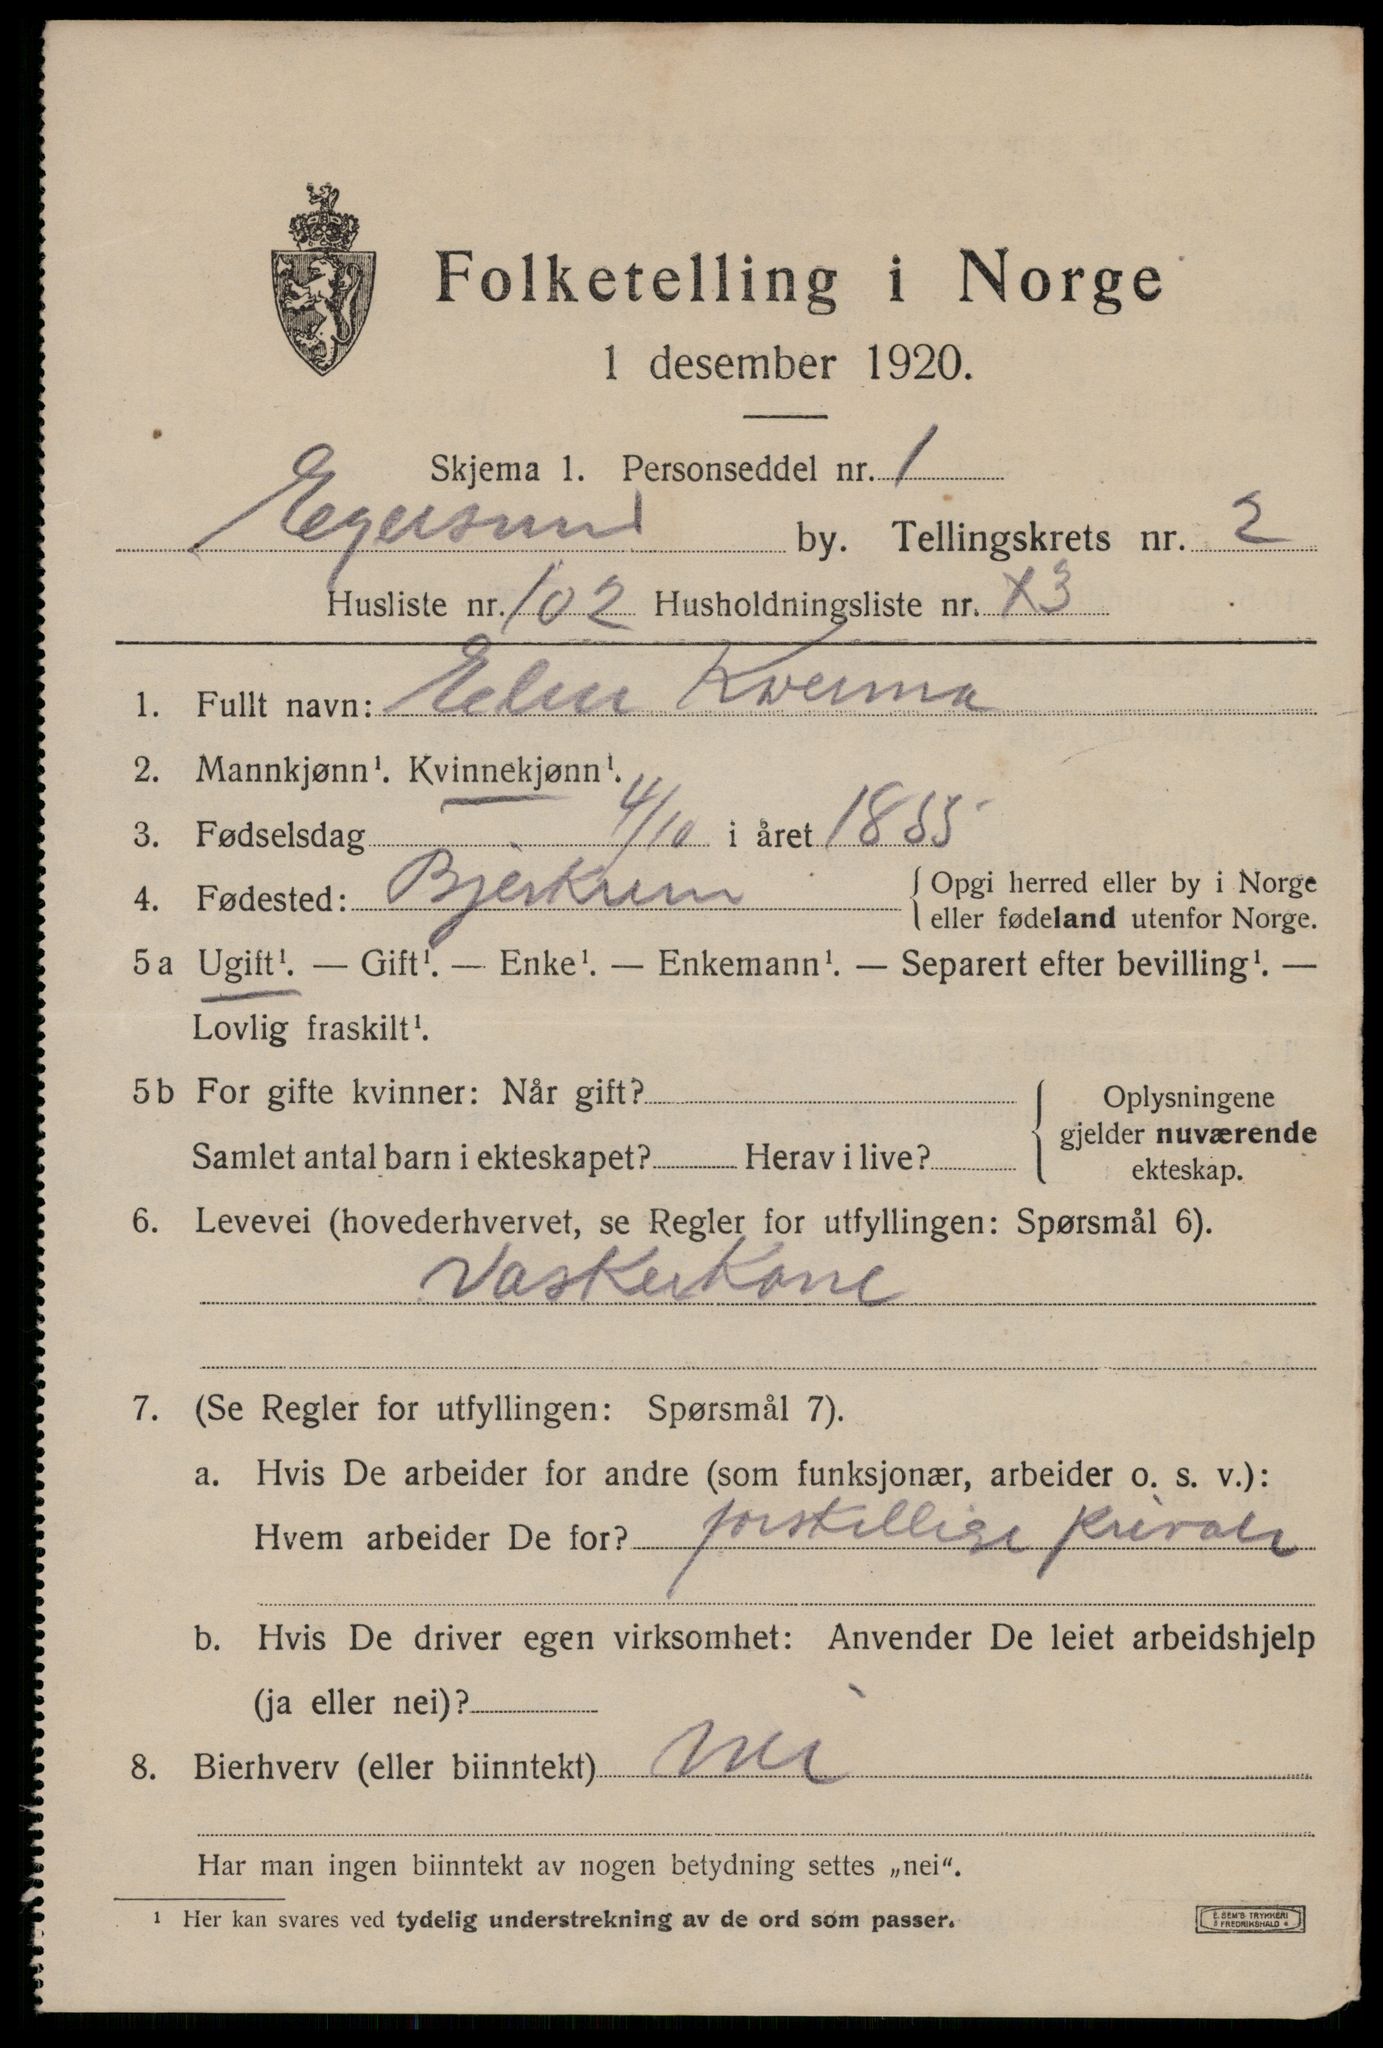 Folketelling i Norge
1 desember 1920.
Skjema 1. Personseddel nr. 1
Egersund by. Tellingskrets nr. 2
Husliste nr. 102 Husholdningsliste nr. x3
1. Fullt navn: Elen
2. Mannkjønn¹. Kvinnekjønn¹.
3. Fødselsdag 4/10 i året 1855
4. Fødested: Bjerkrem { Opgi herred eller by i Norge
eller fødeland utenfor Norge.
5a Ugift¹. — Gift¹. — Enke¹. — Enkemann¹. — Separert efter bevilling¹. —
Lovlig fraskilt¹.
5b For gifte kvinner: Når gift? { Oplysningene
gjelder nuværende
Samlet antal barn i ekteskapet? Herav i live? ekteskap.
6. Levevei (hovederhvervet, se Regler for utfyllingen: Spørsmål 6).
Vaskerkone
7. (Se Regler for utfyllingen: Spørsmål 7).
a. Hvis De arbeider for andre (som funksjonær, arbeider o. s. v.):
Hvem arbeider De for? forskellige private
b. Hvis De driver egen virksomhet: Anvender De leiet arbeidshjelp
(ja eller nei)?
8. Bierhverv (eller biinntekt) nei
Har man ingen biinntekt av nogen betydning settes „nei“.
¹ Her kan svares ved tydelig understrekning av de ord som passer.
E. SEM'S TRYKKERI
FREDRIKSHALD